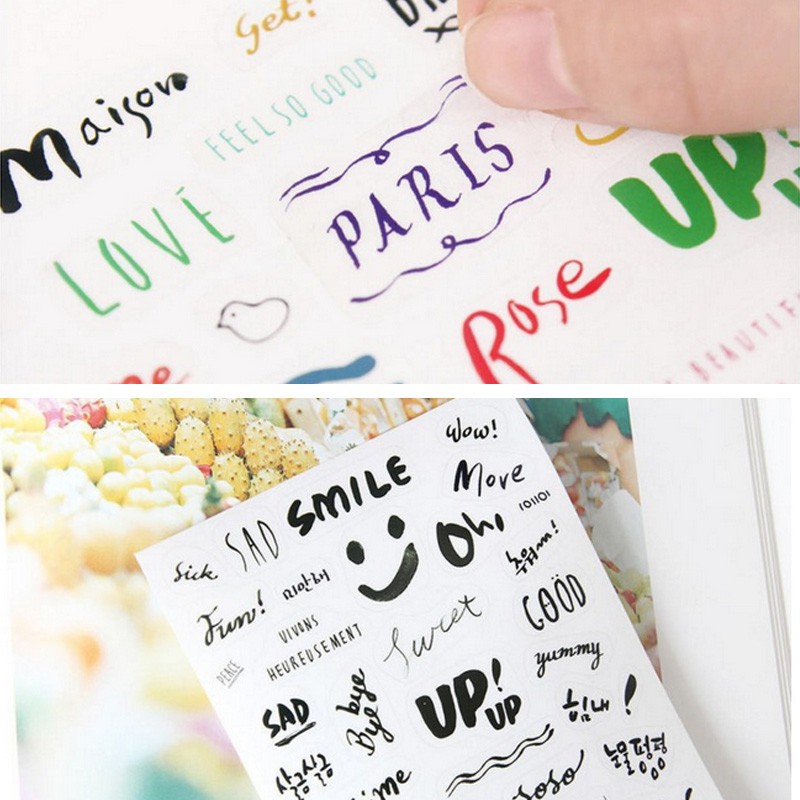 Get!
Maison
FEEL SO GOOD
PARIS
LOVE
UP!
Rose
BEAUTIF
Wow!
Move
SMILE
101101
SAD
Oh,
Sick
추워~!
Fun!
미안해
GOOD
VIVONS
HEUREUSEMENT
Sweet
PEACE
yummy
SAD
bye
Bye
UP!
UP
힘내!
살금살금
눈물펑펑
soso